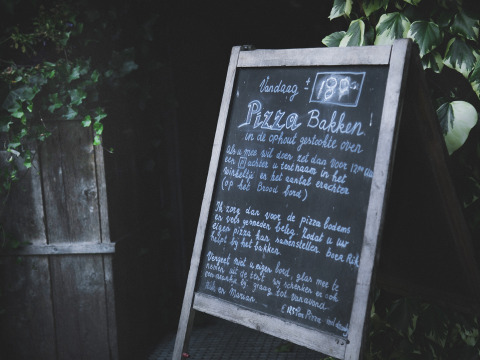 Vandaag ± 18
Pizza Bakken!
in de ophout gestookte oven
Als u mee wil doen zet dan voor 17
een P achter u tentnaam in het
winkeltje en het aantal erachter
(op het Brood bord)
Ik zorg dan voor de pizza bodems
en vele beleg. Zodat u uw
eigen pizza kan samenstellen. Boer Rik
helpt bij het bakken.
Vergeet niet u eigen bord, glas mee te
nemen uit de tent wij schenken er ook
een bij. graag tot vanavond
Rik en Marian.
Pizza